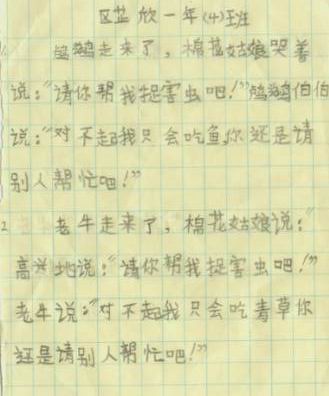 区芷欣一年(4)班
1. 鸬鹚走来了，棉花姑娘哭着
说："请你帮我捉害虫吧！"鸬鹚伯伯
说："对不起我只会吃鱼，你还是请
别人帮忙吧！"
2 老牛走来了，棉花姑娘说："
高兴地说："请你帮我捉害虫吧！"
老牛说："对不起我只会吃青草你
还是请别人帮忙吧！"